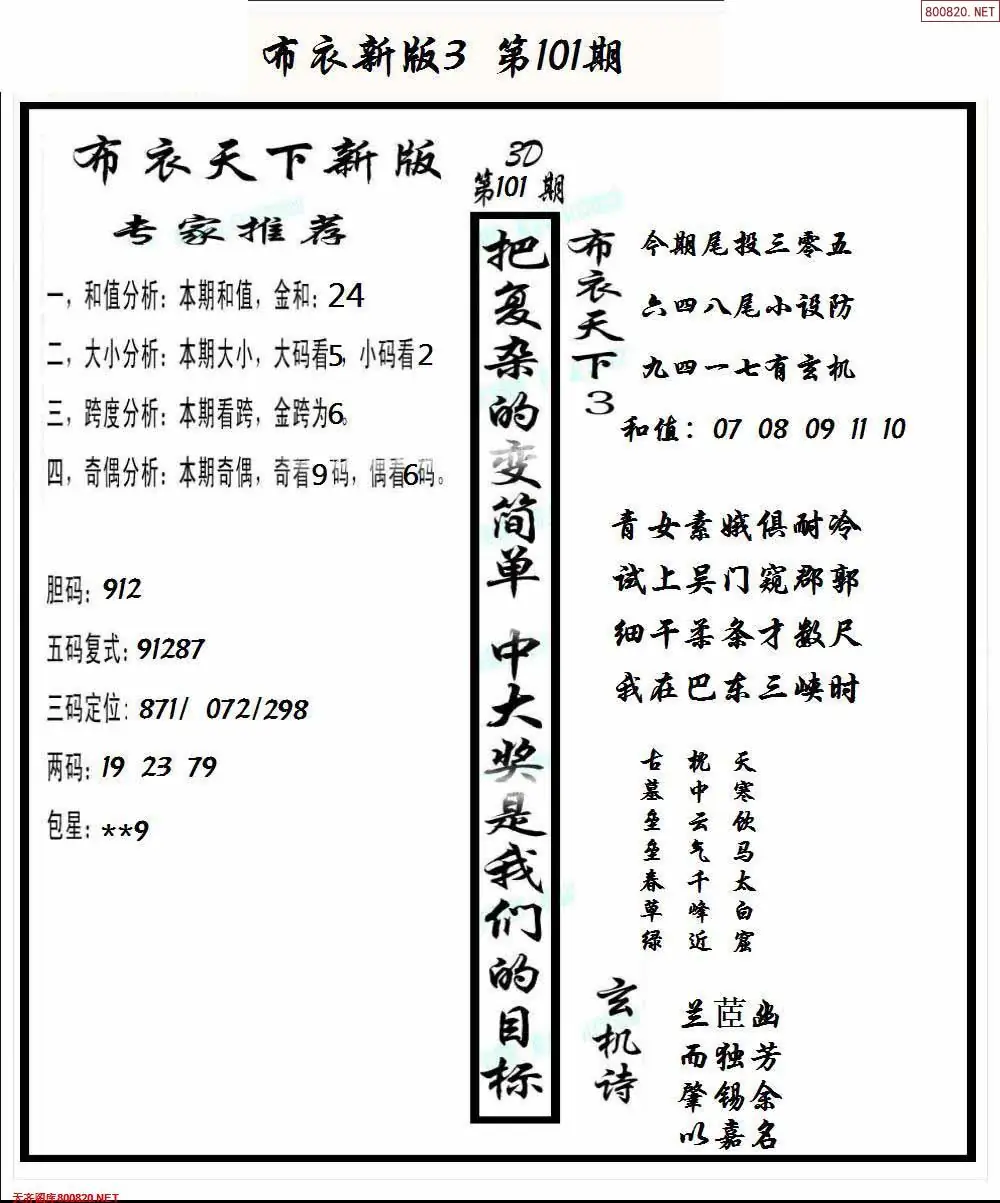 800820.NET
布衣新版3 第101期
布衣天下新版
专家推荐
一，和值分析：本期和值，金和：24
二，大小分析：本期大小，大码看5，小码看2
三，跨度分析：本期看跨，金跨为6。
四，奇偶分析：本期奇偶，奇看9码，偶看6码。
胆码：912
五码复式：91287
三码定位：871/ 072/298
两码：19 23 79
包星：**9
3D
第101期
把复杂的变简单 中大奖是我们的目标
布衣天下3
今期尾投三零五
六四八尾小设防
九四一七有玄机
和值： 07 08 09 11 10
青女素娥俱耐冷
试上吴门窥郡郭
细干柔条才数尺
我在巴东三峡时
天寒饮马太白窟
枕中云气千峰近
古墓垒垒春草绿
玄机诗
兰茝幽
而独芳
肇锡余
以嘉名
天齐图库800820.NET